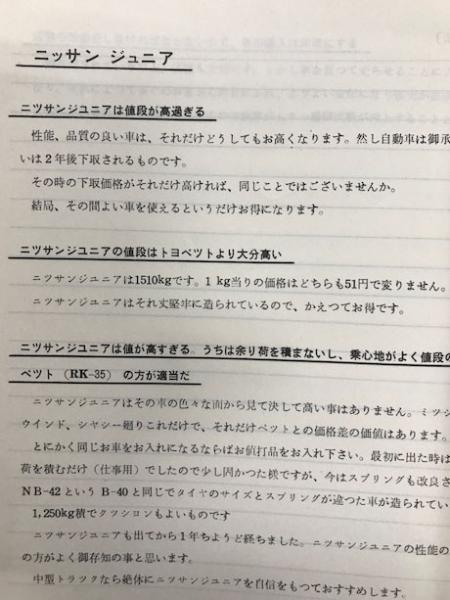 ニッサン ジュニア
ニツサンジユニアは値段が高過ぎる
性能、品質の良い車は、それだけどうしてもお高くなります。然し自動車は御承
いは2年後下取されるものです。
その時の下取価格がそれだけ高ければ、同じことではございませんか。
結局、その間よい車を使えるというだけお得になります。
ニツサンジユニアの値段はトヨペツトより大分高い
ニツサンジユニアは1510kgです。1 kg当りの価格はどちらも51円で変りません。
ニツサンジユニアはそれ丈堅牢に造られているので、かえつてお得です。
ニツサンジユニアは値が高すぎる。うちは余り荷を積まないし、乗心地がよく値段の
ペツト (RK-35) の方が適当だ
ニツサンジユニアはその車の色々な面から見て決して高い事はありません。ミツシ
ウインド、シヤシー廻りこれだけで、それだけペツトとの価格差の価値はあります。
とにかく同じお車をお入れになるならばお値打品をお入れ下さい。最初に出た時は
荷を積むだけ(仕事用)でしたので少し固かつた様ですが、今はスプリングも改良さ
NB-42という B-40と同じでタイヤのサイズとスプリングが違つた車が造られてい
1,250kg積でクツシヨンもよいものです
ニツサンジユニアも出てから1年ちようど経ちました。ニツサンジユニアの性能の
の方がよく御存知の事と思います。
中型トラツクなら絶体にニツサンジユニアを自信をもつておすすめします。